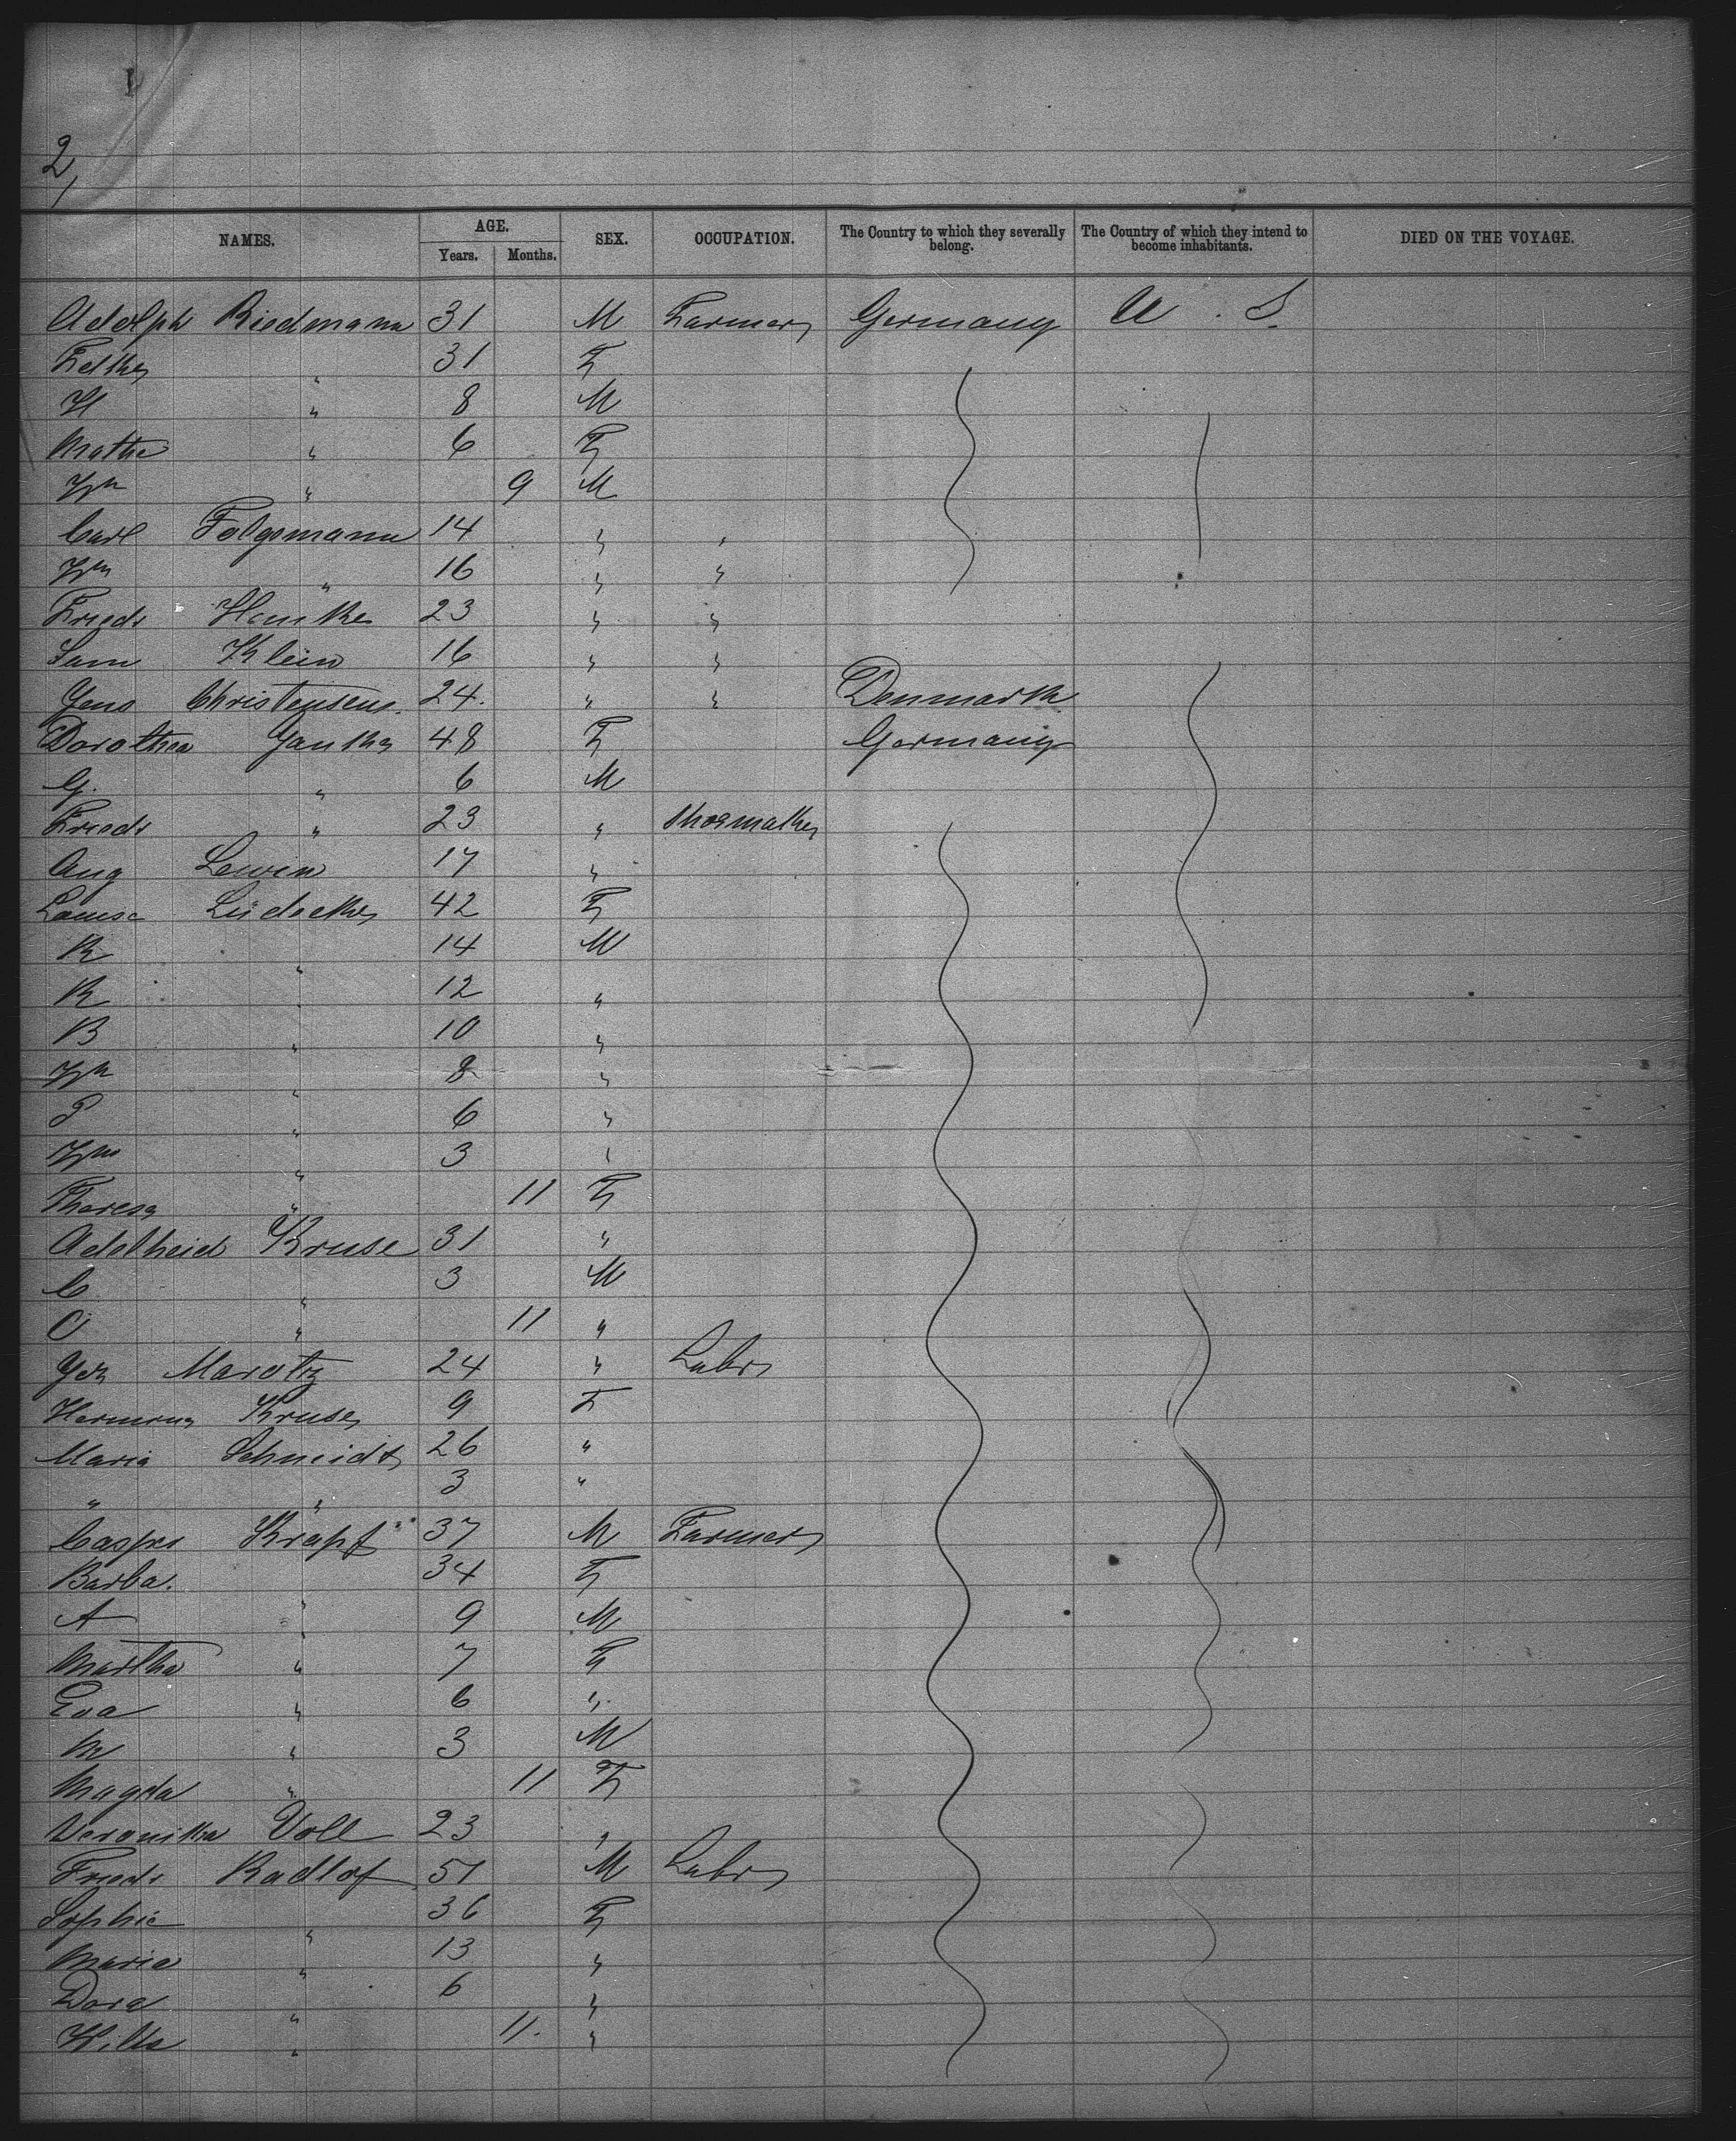 2,
NAMES. AGE. Years. Months. SEX. OCCUPATION. The Country to which they severally belong. The Country of which they intend to become inhabitants. DIED ON THE VOYAGE.
Adolph Riedmann 31 M Farmer Germany U. S.
31 F
H " 8 M
Mathe " 6 F
Wm " 9 M
Carl Folgemann 14 " "
Wm " 16 " "
Friedr Hemke 23 " "
Sam Klein 16 " "
Jens Christensen. 24. " " Denmark
Dorothea Janke 48 F Germany
G. " 6 M
Friedr " 23 " Shoemaker
Aug Lewin 17 "
Louise Lüdecke 42 F
R " 14 M
R " 12 "
B " 10 "
Wm " 8 "
P " 6 "
Wm " 3 "
Theresa " 11 F
Adelheid Kruse 31 "
C " 3 M
O " 11 "
Marotz 24 " Labr
Hermine Kruse 9 F
Maria Schmidt 26 "
" " 3 "
Casper Krapf 37 M Farmer
Barba. " 34 F
A " 9 M
Martha " 7 F
Eva " 6 "
M " 3 M
Magda " 11 F
Veronika Voll 23 "
Friedr Radlof 51 M Labr
Sophie " 36 F
Maria " 13 "
Dora " 6 "
" 11. "